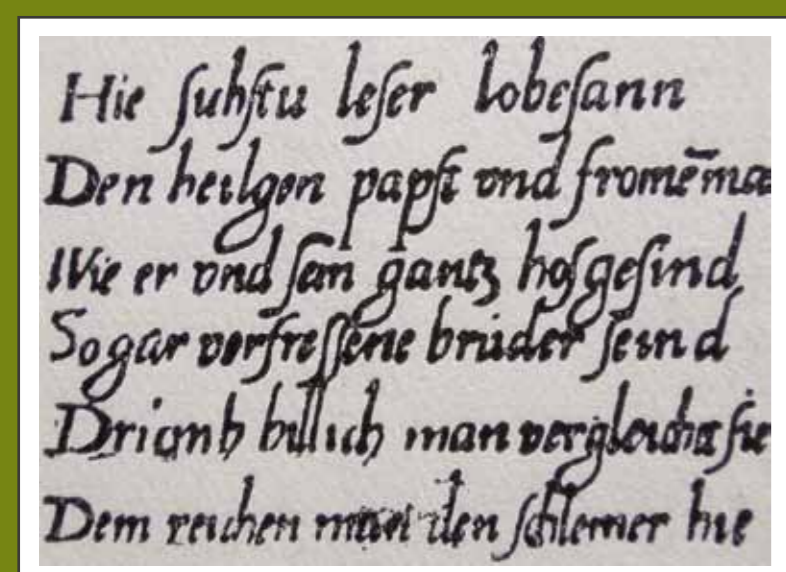 Hie suhstu leser lobesann
Den heilgen papst vnd fromē ma
Wie er vnd sein gantz hofgesind
So gar verfressene brüder seind
Driomb billich man vergleicht sie
Dem reichen man den schlemer hie